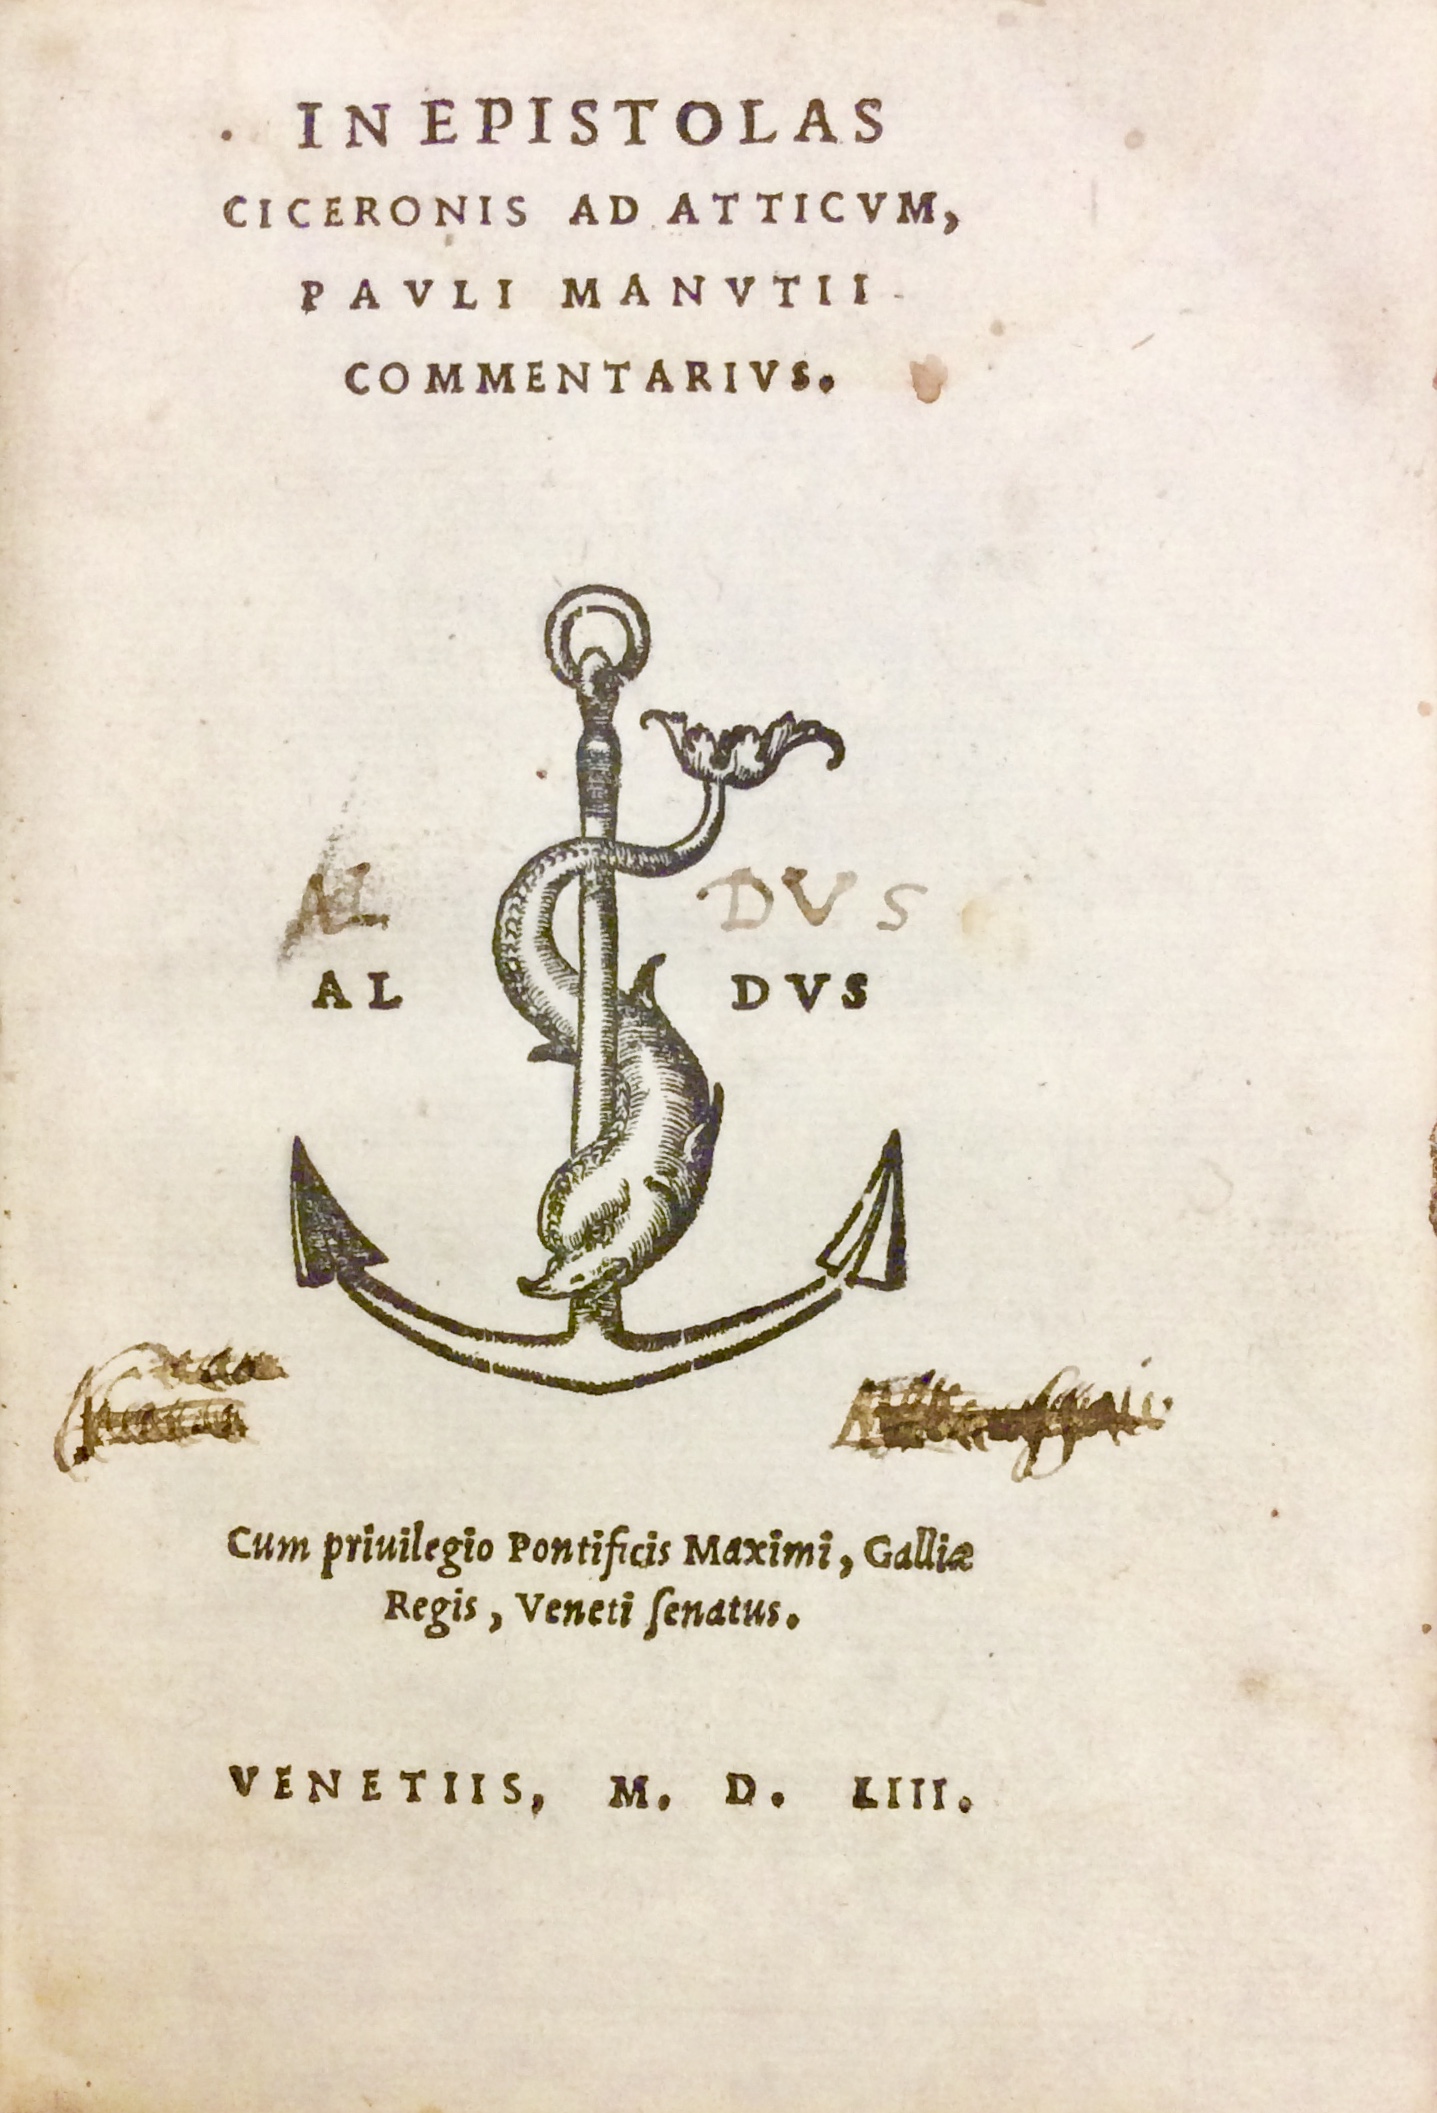 IN EPISTOLAS
CICERONIS AD ATTICVM,
PAVLI MANVTII
COMMENTARIVS.
AL DVS
AL DVS
Cum priuilegio Pontificis Maximi, Galliæ
Regis, Veneti ſenatus.
VENETIIS, M. D. LIII.